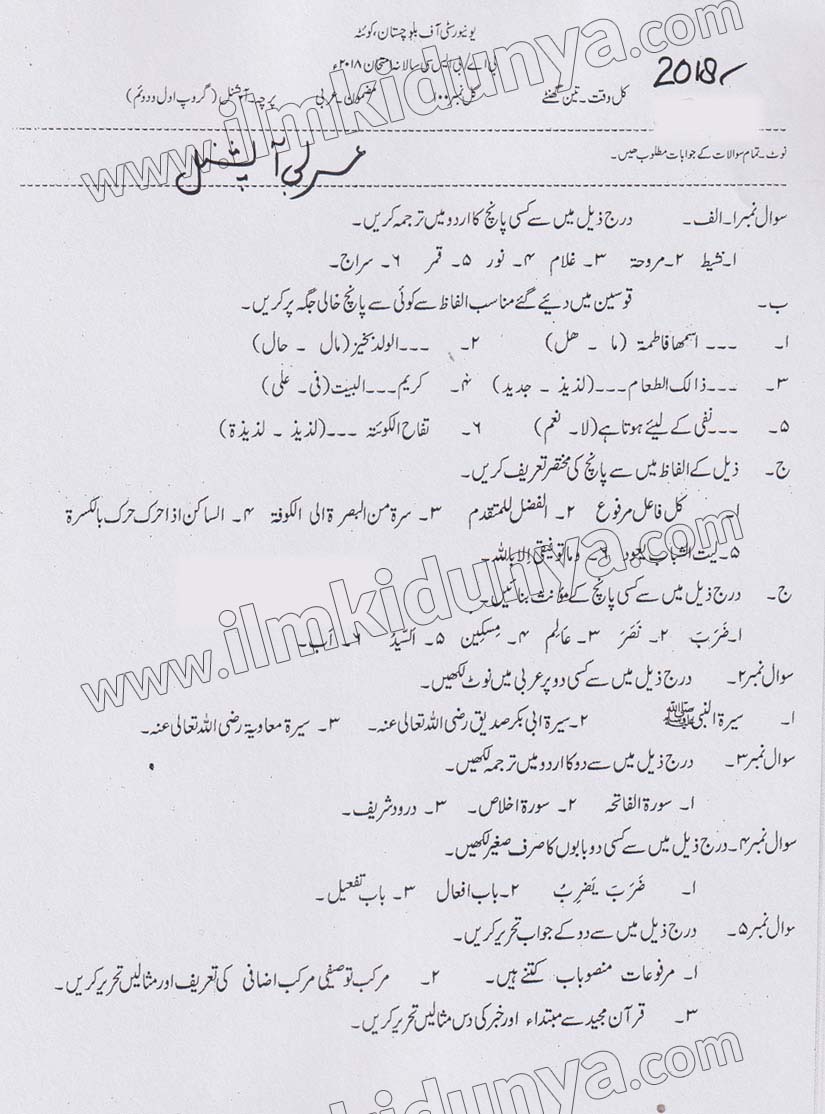 یونیورسٹی آف بلوچستان، کوئٹہ
بی اے/بی ایس سی سالانہ امتحان ۲۰۱۸ء
2018ء
کل وقت۔ تین گھنٹے کل نمبر ۱۰۰ مضمون۔ عربی پرچہ۔ آپشنل (گروپ اول و دوئم)
نوٹ۔ تمام سوالات کے جوابات مطلوب ھیں۔
عربی آپشنل
سوال نمبر۱۔ الف۔ درج ذیل میں سے کسی پانچ کا اردو میں ترجمہ کریں۔
۱۔ نشیط ۲۔ مروحۃ ۳۔ غلام ۴۔ نور ۵۔ قمر ۶۔ سراج۔
ب۔ قوسین میں دیئے گئے مناسب الفاظ سے کوئی سے پانچ خالی جگہ پر کریں۔
۱۔ ۔۔۔ اسمھا فاطمۃ (ما ۔ ھل) ۲۔ ۔۔۔الولد بخیز (مال ۔ حال)
۳۔ ۔۔۔ذالک الطعام۔۔۔(لذیذ ۔ جدید) ۴۔ کریم۔۔۔البیت (فی۔ علٰی)
۵۔ ۔۔۔نفی کے لیئے ہوتا ہے (لا۔ نعم) ۶۔ تفاح الکوئتۃ ۔۔۔(لذیذ ۔ لذیذۃ)
ج۔ ذیل کے الفاظ میں سے پانچ کی مختصر تعریف کریں۔
۱۔ کل فاعل مرفوع ۲۔ الفضل للمتقدم ۳۔ سرۃ من البصرۃ الی الکوفۃ ۴۔ الساکن اذا حرک حرک بالکسرۃ
۵۔ لیت الشباب یعود ۶۔ وما توفیقی الا باللہ۔
ج۔ درج ذیل میں سے کسی پانچ کے مؤنث بنائیں۔
۱۔ ضَرَبَ ۲۔ نَصَرَ ۳۔ عَالِم ۴۔ مِسکِین ۵۔ اَلسَّیِدُ ۶۔ اَب۔
سوال نمبر۲۔ درج ذیل میں سے کسی دو پر عربی میں نوٹ لکھیں۔
۱۔ سیرۃ النبی ﷺ ۲۔ سیرۃ ابی بکر صدیق رضی اللہ تعالی عنہ۔ ۳۔ سیرۃ معاویۃ رضی اللہ تعالی عنہ۔
سوال نمبر۳۔ درج ذیل میں سے دو کا اردو میں ترجمہ لکھیں۔
۱۔ سورۃ الفاتحہ ۲۔ سورۃ اخلاص۔ ۳۔ درود شریف۔
سوال نمبر۴۔ درج ذیل میں سے کسی دو بابوں کا صرف صغیر لکھیں۔
۱۔ ضَرَبَ یَضرِبُ ۲۔ باب افعال ۳۔ باب تفعیل۔
سوال نمبر۵۔ درج ذیل میں سے دو کے جواب تحریر کریں۔
۱۔ مرفوعات منصوباب کتنے ہیں۔ ۲۔ مرکب توصیفی مرکب اضافی کی تعریف اور مثالیں تحریر کریں۔
۳۔ قرآن مجید سے مبتداء اور خبر کی دس مثالیں تحریر کریں۔
www.ilmkidunya.com
www.ilmkidunya.com
www.ilmkidunya.com
www.ilmkidunya.com